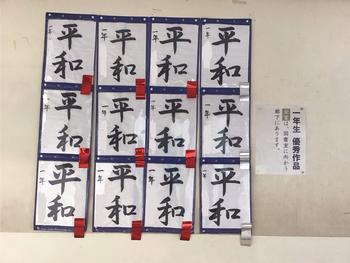 平和
一年
平和
一年
平和
一年
平和
一年
平和
一年
平和
一年
平和
一年
平和
一年
平和
一年
平和
一年
平和
一年
平和
一年
一年生 優秀作品
は、図書室に向かう
廊下にあります。